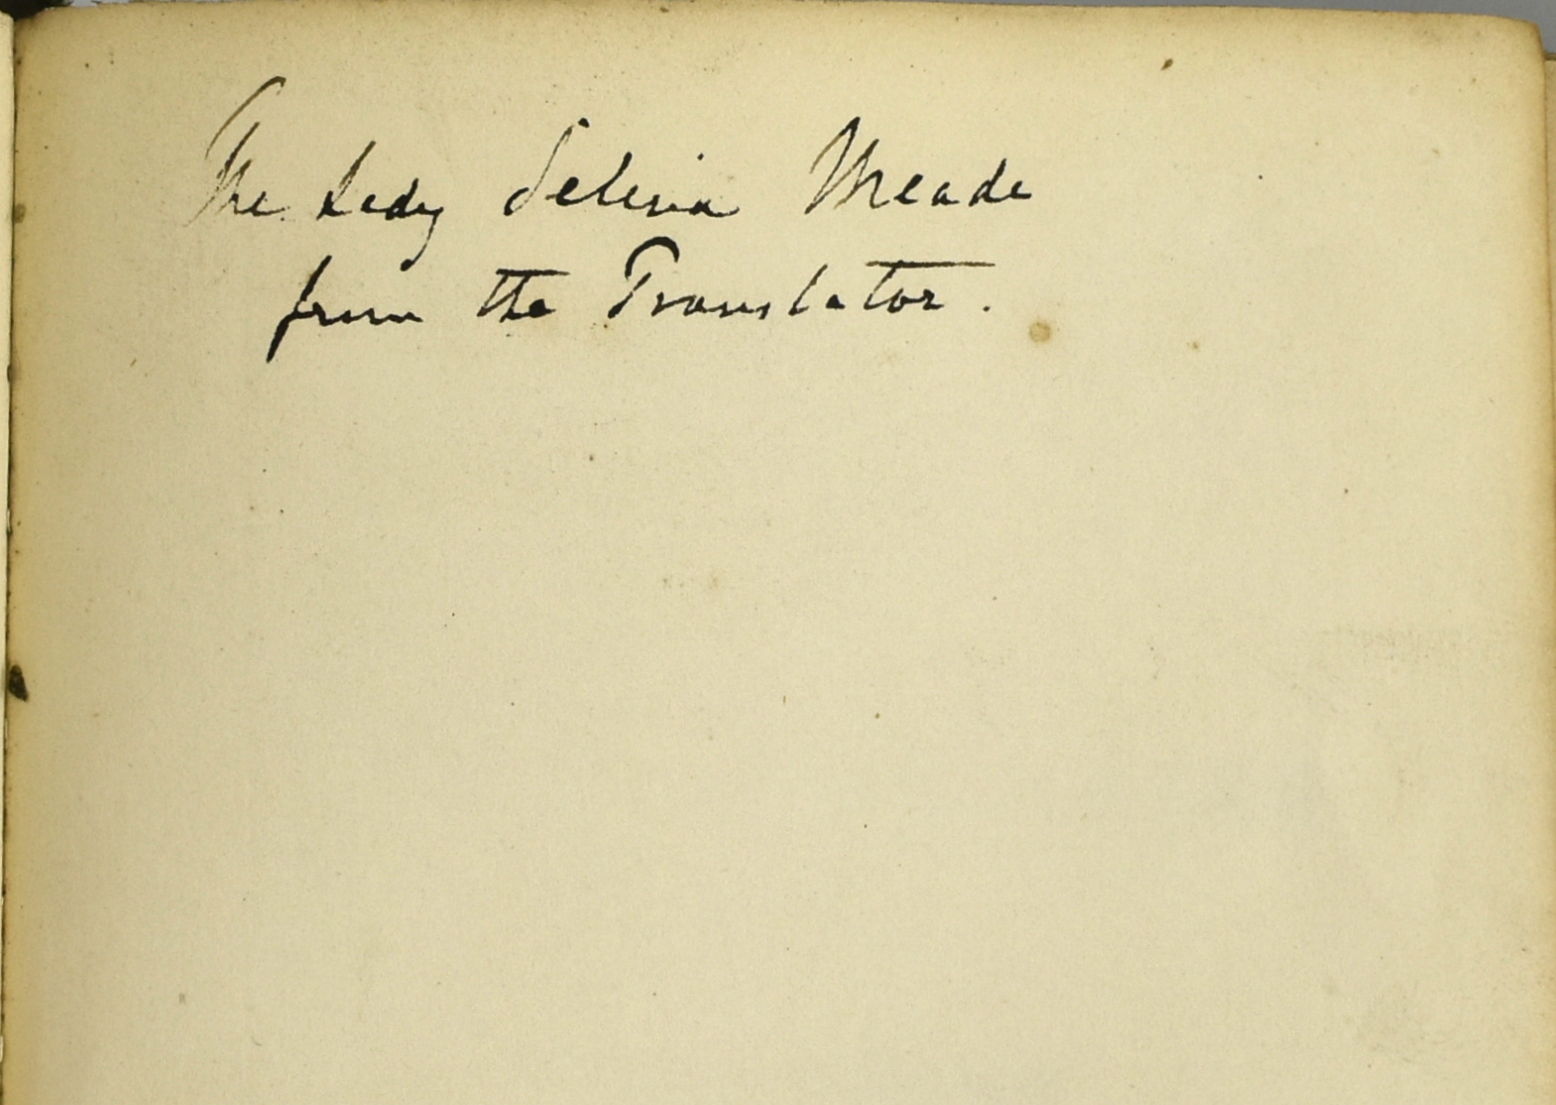 The Lady Selina Meade
from the Translator.